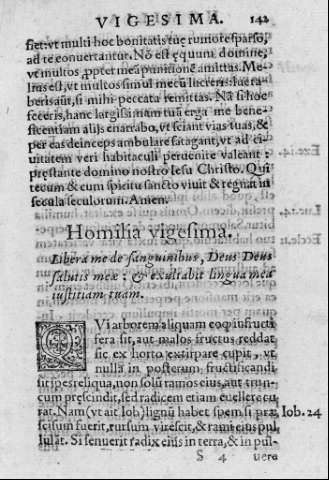 VIGESIMA. 142
fiet: vt multi hoc bonitatis tuę rumore sparso,
ad te conuertantur. Nō est ęquum domine,
vt multos ꝓpter meā punitionē amittas. Me-
lius est, vt multos simul mecū lucreris: lucra-
beris aūt, si mihi peccata remittas. Nā si hoc
feceris, hanc largissimam tuā erga me bene-
ficentiam alijs enarrabo, vt sciant vias tuas, &
per eas deinceps ambulare satagant, vt ad ci-
uitatem veri habitaculi peruenire valeant:
pręstante domino nostro Iesu Christo. Qui
tecum & cum spiritu sancto viuit & regnat in
secula seculorum. Amen.
Homilia vigesima.
Libera me de sanguinibus, Deus Deus
salutis meæ: & exultabit lingua mea
iustitiam tuam.
QVi arborem aliquam eoꝙ infructi
fera sit, aut malos fructus reddat
sic ex horto extirpare cupit, vt
nulla in posterum fructificandi
sit spes reliqua, non solū ramos eius, aut trun-
cum pręscindit, sed radicem etiam euellere cu
rat. Nam (vt ait Iob) lignū habet spem: si præ Iob. 24
scisum fuerit, rursum virescit, & rami eius pul
lulat. Si senuerit radix eius in terra, & in pul-
S 4 uere